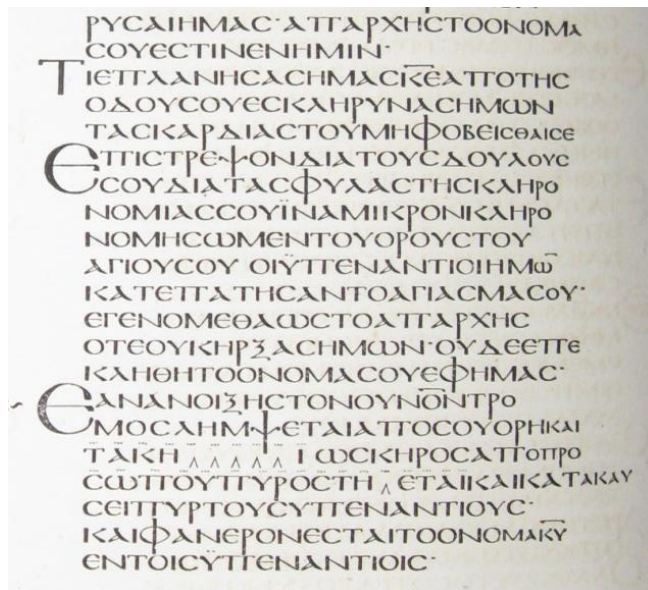 ΡΥϹΑΙΗΜΑϹ· ΑΠΑΡΧΗϹΤΟΟΝΟΜΑ
ϹΟΥΕϹΤΙΝΕΝΗΜΙΝ·
ΤΙΕΠΛΑΝΗϹΑϹΗΜΑϹΚ̅Ε̅ΑΠΟΤΗϹ
ΟΔΟΥϹΟΥΕϹΚΛΗΡΥΝΑϹΗΜΩΝ
ΤΑϹΚΑΡΔΙΑϹΤΟΥΜΗΦΟΒΕΙϹΘΑΙϹΕ
ΕΠΙϹΤΡΕΨΟΝΔΙΑΤΟΥϹΔΟΥΛΟΥϹ
ϹΟΥΔΙΑΤΑϹΦΥΛΑϹΤΗϹΚΛΗΡΟ
ΝΟΜΙΑϹϹΟΥΪΝΑΜΙΚΡΟΝΚΛΗΡΟ
ΝΟΜΗϹΩΜΕΝΤΟΥΟΡΟΥϹΤΟΥ
ΑΓΙΟΥϹΟΥ ΟΙΫΠΕΝΑΝΤΙΟΙΗΜΩ̅
ΚΑΤΕΠΑΤΗϹΑΝΤΟΑΓΙΑϹΜΑϹΟΥ·
ΕΓΕΝΟΜΕΘΑΩϹΤΟΑΠΑΡΧΗϹ
ΟΤΕΟΥΚΗΡΞΑϹΗΜΩΝ·ΟΥΔΕΕΠΕ
ΚΛΗΘΗΤΟΟΝΟΜΑϹΟΥΕΦΗΜΑϹ·
ΕΑΝΑΝΟΙΞΗϹΤΟΝΟΥΝΟ̅Ν̅ΤΡΟ
ΜΟϹΛΗΜΨΕΤΑΙΑΠΟϹΟΥΟΡΗΚΑΙ
ΤΑΚΗ Λ Λ Λ Λ Λ Ι ΩϹΚΗΡΟϹΑΠΟΠΡΟ
ϹΩΠΟΥΠΥΡΟϹΤΗ Λ ΕΤΑΙΚΑΙΚΑΤΑΚΑΥ
ϹΕΙΠΥΡΤΟΥϹΥΠΕΝΑΝΤΙΟΥϹ·
ΚΑΙΦΑΝΕΡΟΝΕϹΤΑΙΤΟΟΝΟΜΑΚ̅Υ̅
ΕΝΤΟΙϹΫΠΕΝΑΝΤΙΟΙϹ·